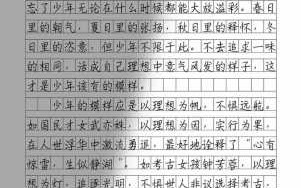 忘了少年无论在什么时候都能大放溢彩。春日
里的朝气，夏日里的张扬，秋日里的释怀，冬
日里的恣意，但少年不限于此。不去追求一味
的相同，活成自己理想中意气风发的样子，这
才是少年该有的模样。
少年的模样应是以理想为帆，不惧远航。
如国民才女武亦姝，以理想为因，实行为果，
在人世浮华中激流勇退，最好地诠释了“心有
惊雷，生似静湖”。如考古女孩钟芳蓉，以理
想为灯，追逐光明，不惧世人非议选择考古，